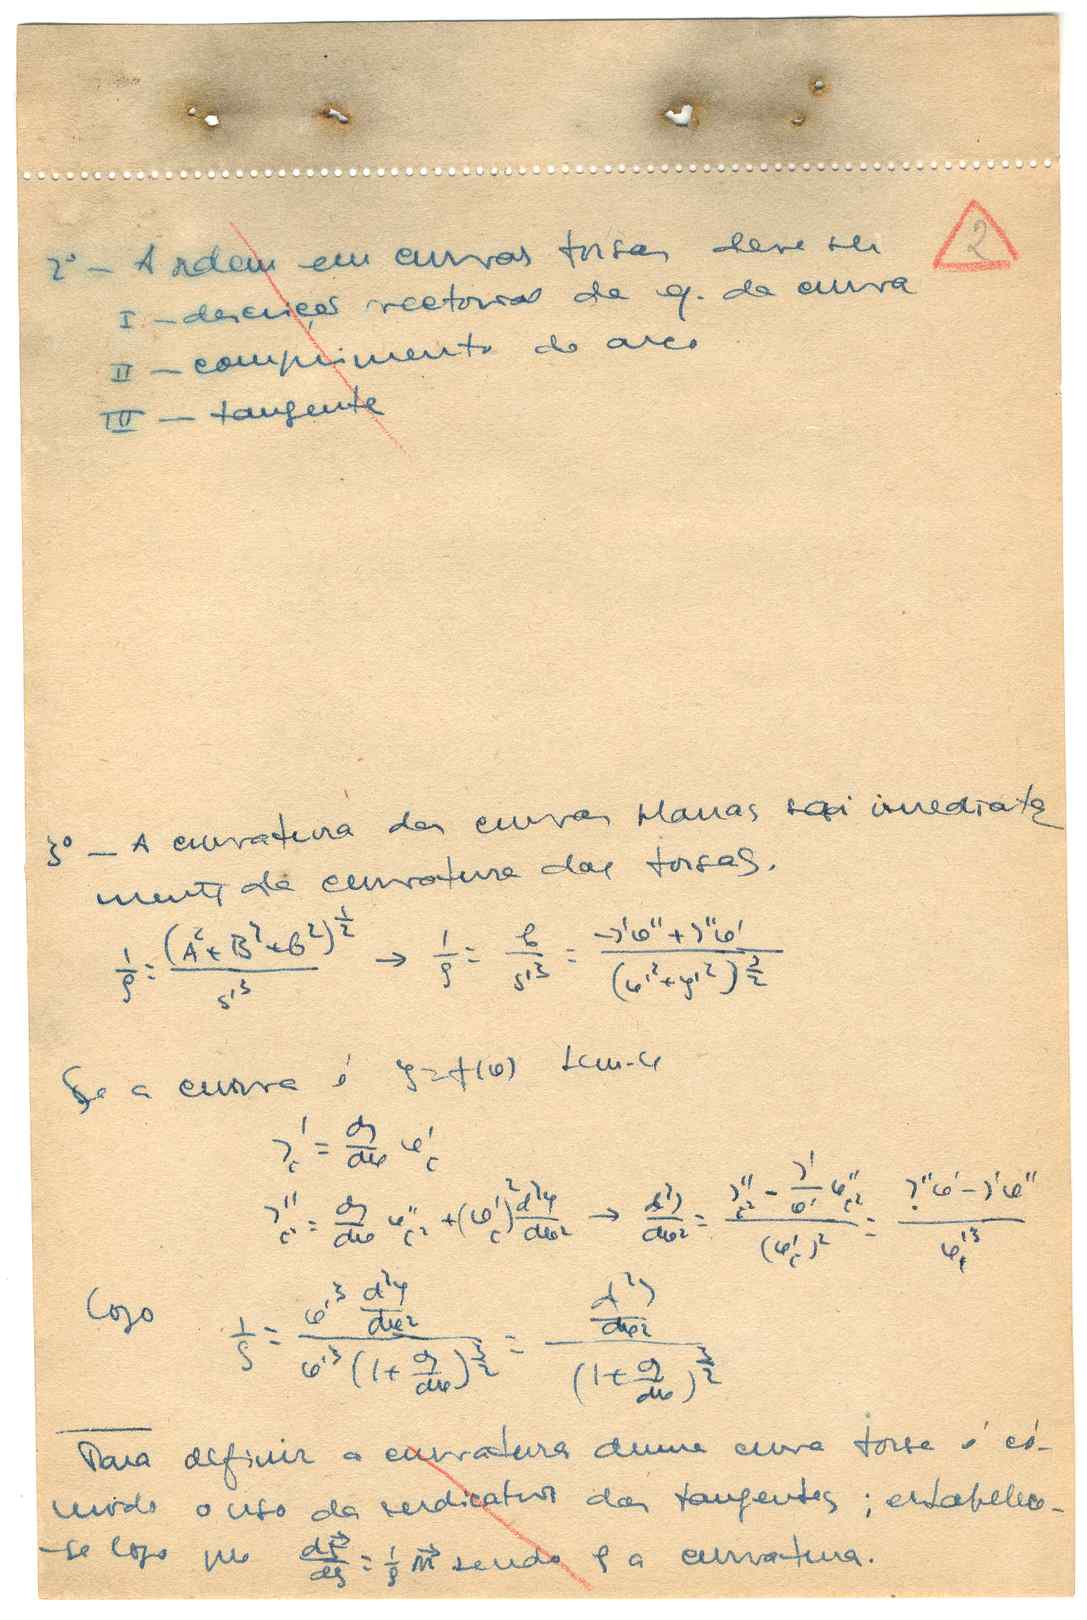 2
2º – A ordem em curvas torsas deve ser
I – descrição vectorial da eq. da curva
II – comprimento do arco
III – tangente
3º – A curvatura das curvas planas sai imediata
mente da curvatura das torsas.
1/ρ = (A² + B² + C²)^{1/2} / s'³ → 1/ρ = C / s'³ = (-y'φ'' + y''φ') / (φ'² + y'²)^{3/2}
Se a curva é y = f(φ) tem-se
y'_t = dy/dφ φ'_t
y''_{t²} = dy/dφ φ''_{t²} + (φ'_t)² d²y/dφ² → d²y/dφ² = (y''_{t²} - y'/φ' φ''_{t²}) / (φ'_t)² = (y''φ' - y'φ'') / φ'_t³
Logo 1/ρ = φ'³ d²y/dφ² / φ'³ (1 + dy/dφ)^{3/2} = d²y/dφ² / (1 + dy/dφ)^{3/2}
Para definir a curvatura duma curva torsa é có-
modo o uso da indicatriz das tangentes; estabelece-
-se logo que = 1/ρ sendo ρ a curvatura.